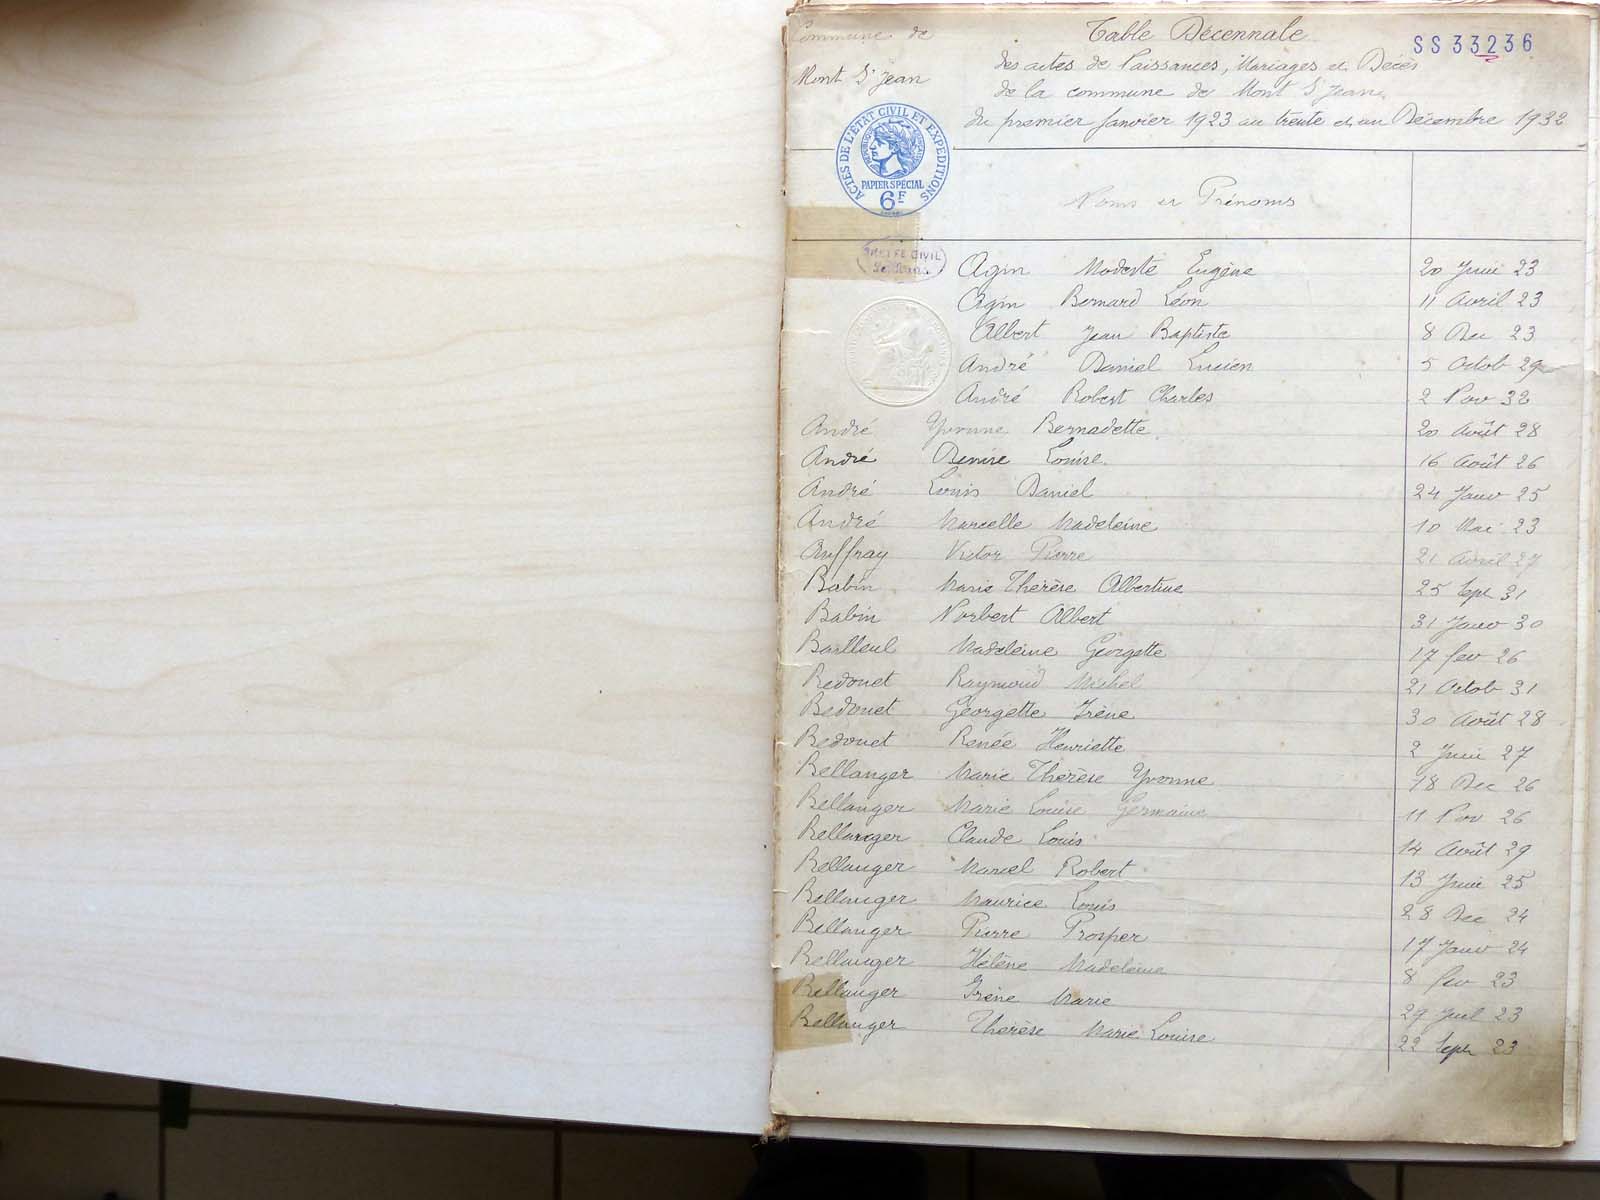 Commune de
Mont St Jean
Table Décennale
SS 33236
des actes de Naissances, Mariages et Décès
de la commune de Mont St Jean
du premier Janvier 1923 au trente et un Décembre 1932
ACTES DE L'ETAT CIVIL ET EXPEDITIONS
REPUBLIQUE FRANCAISE
PAPIER SPECIAL
6F
GREFFE CIVIL
Noms et Prénoms
Agin Modeste Eugène 20 Juin 23
Agin Bernard Léon 11 Avril 23
Albert Jean Baptiste 8 Dec 23
André Daniel Lucien 5 Octob 29
André Robert Charles 2 Nov 32
André Yvonne Bernadette 20 Août 28
André Denise Louise 16 Août 26
André Louis Daniel 24 Janv 25
André Marcelle Madeleine 10 Mai 23
Auffray Victor Pierre 21 Avril 27
Babin Marie Thérèse Albertine 25 Sept 31
Babin Norbert Albert 31 Janv 30
Bailleul Madeleine Georgette 17 fev 26
Bedouet Raymond Michel 21 Octob 31
Bedouet Georgette Irène 30 Août 28
Bedouet Renée Henriette 2 Juin 27
Bellanger Marie Thérèse Yvonne 18 Dec 26
Bellanger Marie Louise Germaine 11 Nov 26
Bellanger Claude Louis 14 Août 29
Bellanger Marcel Robert 13 Juin 25
Bellanger Maurice Louis 28 Dec 24
Bellanger Pierre Prosper 17 Janv 24
Bellanger Hélène Madeleine 8 fev 23
Bellanger Irène Marie 29 Juil 23
Bellanger Thérèse Marie Louise 22 Sept 23